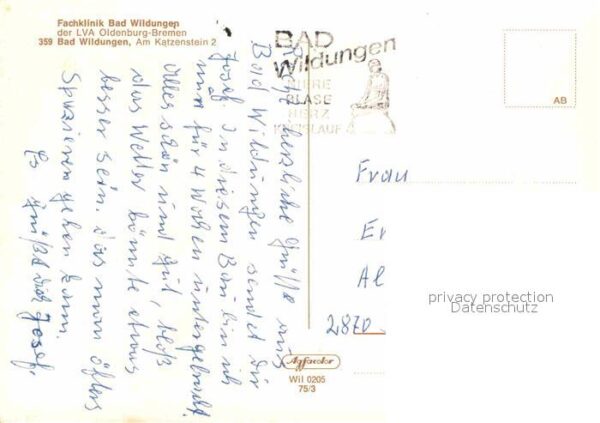 Fachklinik Bad Wildungen
der LVA Oldenburg-Bremen
359 Bad Wildungen, Am Katzenstein 2
BAD
Wildungen
NIERE
BLASE
HERZ
KREISLAUF
AB
herzliche Grüße aus
Bad Wildungen sendet Dir
Josef. In diesem Bau bin ich
nun für 4 Wochen untergebracht.
Alles schön und gut, bloß
das Wetter könnte etwas
besser sein. das man öfters
Spazieren gehen kann.
Es grüßt dich Josef.
Frau
Er
Al
2870
privacy protection
Datenschutz
Agfacolor
Wil 0205
75/3